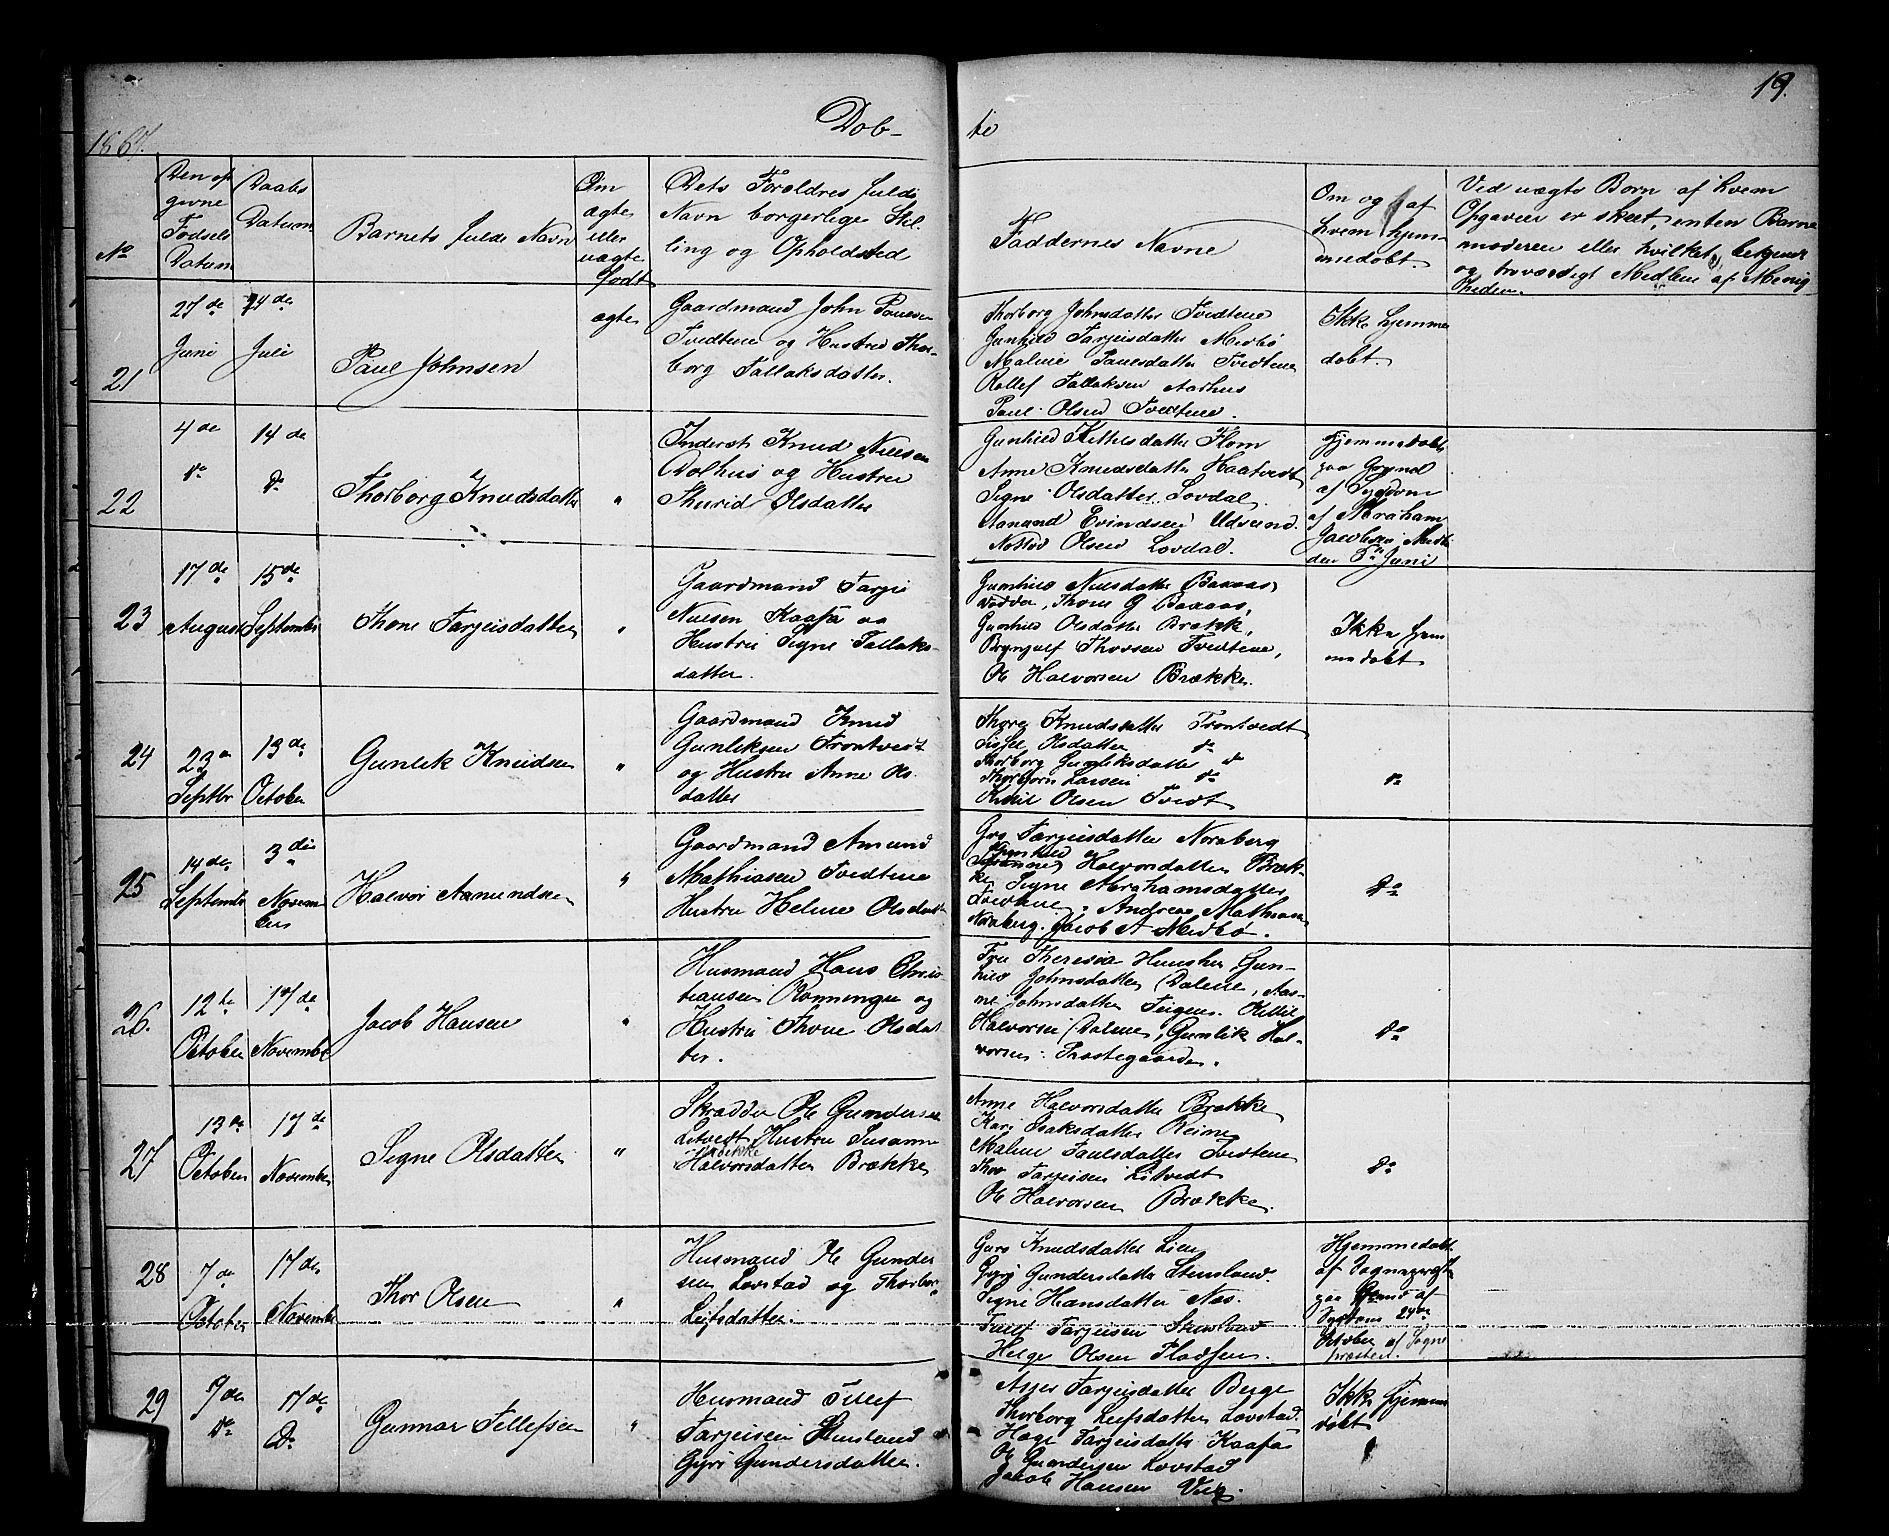 19.
1867.
Dob-
te
No
Den op
givne
Fodsels
Datum
Daabs
Datum
Barnets fulde Navn
Om
ægte
eller
uægte
fodt
Dets Foreldres fulde
Navn borgerlige Stil
ling og Opholdsted
Faddernes Navne
Om og af
hvem hjem
medobt.
Ved uægte Born af hvem
Opgaven er skeet, enten Barne
moderen eller hvilket bekjendt
og troværdigt Medlem af Menig
heden.
21
27de
Juni
24de
Juli
Paul Johnsen
ægte
Gaardmand John Paulsen
Tvedtene og Hustru Thor-
borg Tallaksdatter.
Thorborg Johnsdatter Tvedtene
Gunhild Tarjeisdatter Medbö
Malene Paulsdatter Tvedtene
Rollef Tallaksen Aarhus
Paul Olsen Tvedtene.
Ikke hjemme
dobt.
22
4de
do
14de
do
Thorborg Knudsdatter
"
Inderst Knud Nielsen
Aolhus og Hustru
Thurid Olsdatter
Gunhild Kittelsdatter Flom
Anne Knudsdatter Haatvedt
Signe Olsdatter Lovdal
Aamund Evindsen Udsund.
Olsen Lovdal.
Hjemmedobt
paa Grund
af Sygdom
af Abraham
Jacobsen
den 5te Juni
23
17de
August
15de
September
Thone Tarjeisdatter
"
Gaardmand Tarjei
Nielsen Kaasa og
Hustru Signe Tallaks-
datter.
Gunhild Nielsdatter Baxaas
Thone G Baxaas,
Gunhild Olsdatter Brækk,
Bryngulf Thorsen Tvedtene,
Ole Halvorsen Brække.
Ikke hjem
medobt
24
23de
Septbr
13de
October
Gunlek Knudsen
"
Gaardmand Knud
Gunleksen Trontvedt
og Hustru Anne Ols
datter
Thore Knudsdatter Trontvedt
Sissel Olsdatter do
Thorborg Gunleksdatter do
Thorbjorn Larsen do
Kittil Olsen Tvedt
do
25
14de
September
3die
Novem
ber
Halvor Aamundsen
"
Gaardmand Amund
Mathiasen Tvedtene
Hustru Helene Olsdatter
Gro Tarjeisdatter Noraberg
Gunhild
Halvorsdatter Bræk-
ke Signe Abrahamsdatter
Tvedtene. Andreas Mathiasen
Noraberg. Jacob A Medbö.
Do
26.
12te
October
17de
November
Jacob Hansen
"
Husmand Hans Chris
tiansen Ronningen og
Hustru Thone Olsdat
ter.
Fru Theresia Gun-
hild Johnsdatter Dalene, Aas-
ne Johnsdatter Teigen. Kittil
Halvorsen Dalene, Gunlik Hal-
vorsen Præstegaarden.
Do
27
13de
October
17de
November
Signe Olsdatter
"
Skrædder Ole Gundersen
Litvedt Hustru Susanne
Halvorsdatter Brække
Anne Halvorsdatter Brække
Kari Isaksdatter Reime
Malene Paulsdatter Tvedtene
Thor Tarjeisen Litvedt
Ole Halvorsen Brække.
Do
28
7de
October
17de
November
Thor Olsen
"
Husmand Ole Gunder
sen Lovstad og Thorbor
Leifsdatter.
Guro Knudsdatter Lien
Gyri Gundersdatter Stensland.
Signe Hansdatter Næs.
Tellef Tarjeisen Stensland
Helge Olsen Pladsen.
Hjemmedobt
af Sognepræsten
paa Grund af
Sygdom 24de
October af Sogne
præsten.
29
7de
do
17de
Do
Gunnar Tellefsen
"
Husmand Tellef
Tarjeisen Stensland
Gyri Gundersdatter.
Asper Tarjeisdatter Berge
Thorborg Leifsdatter Lovstad.
Hæge Tarjeisdatter Kaasa
Ole Gundersen Lovstad
Jacob Hansen
Ikke hjemme
dobt